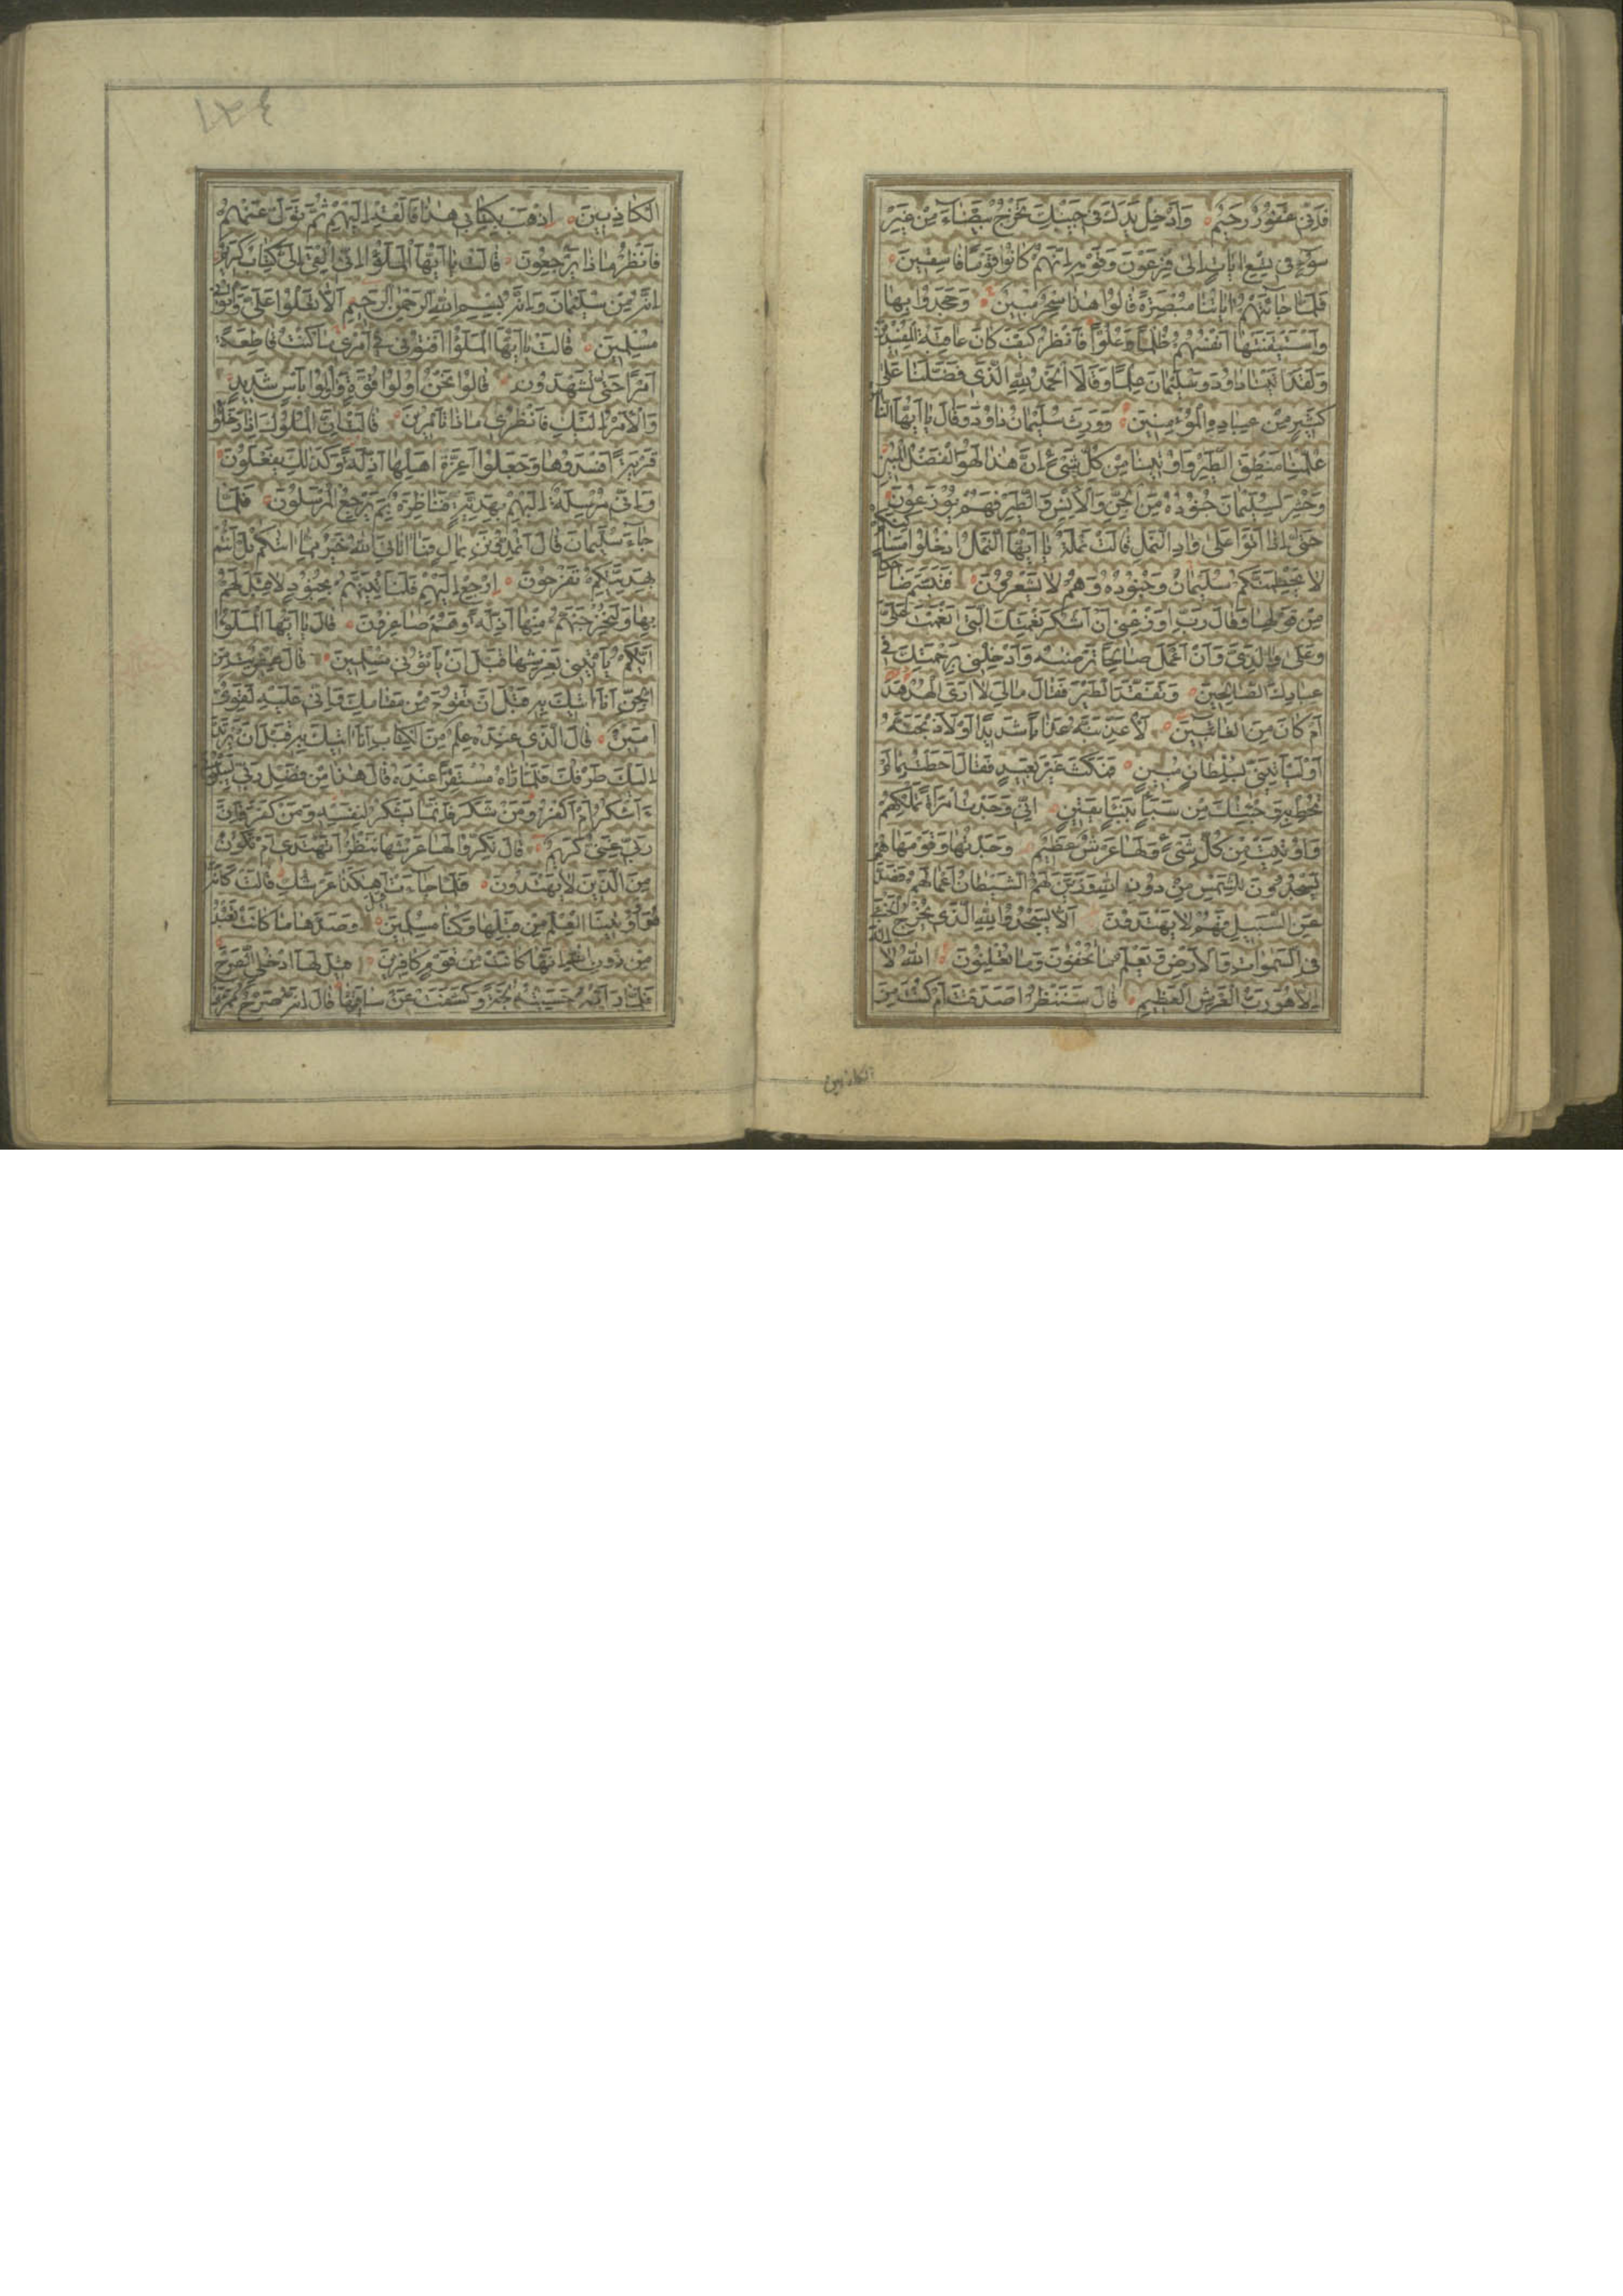 فَاِنّى غَفُورٌ رَحيمٌ وَاَدْخِلْ يَدَكَ فى جَيْبِكَ تَخْرُجْ بَيْضآءَ مِنْ غَيْرِ
سُوءٍ فى تِسْعِ اياتٍ اِلى فِرْعَوْنَ وَقَوْمِهِ اِنَّهُمْ كانُوا قَوْمًا فاسِقينَ
فَلَمّا جائَتْهُمْ اياتُنا مُبْصِرَةً قالُوا هذا سِحْرٌ مُبينٌ وَجَحَدُوا بِها
وَاسْتَيْقَنَتْها اَنْفُسُهُمْ ظُلْمًا وَعُلُوًّا فَانْظُرْ كَيْفَ كانَ عاقِبَةُ الْمُفْسِدينَ
وَلَقَدْ اتَيْنا داوُدَ وَسُلَيْمانَ عِلْمًا وَقالَا الْحَمْدُ لِلّهِ الَّذى فَضَّلَنا عَلى
كَثيرٍ مِنْ عِبادِهِ الْمُؤْمِنينَ وَوَرِثَ سُلَيْمانُ داوُدَ وَقالَ يا اَيُّهَا النّاسُ
عُلِّمْنا مَنْطِقَ الطَّيْرِ وَاُوتينا مِنْ كُلِّ شَىْءٍ اِنَّ هذا لَهُوَ الْفَضْلُ الْمُبينُ
وَحُشِرَ لِسُلَيْمانَ جُنُودُهُ مِنَ الْجِنِّ وَالْاِنْسِ وَالطَّيْرِ فَهُمْ يُوزَعُونَ
حَتّى اِذا اَتَوْا عَلى وادِ النَّمْلِ قالَتْ نَمْلَةٌ يا اَيُّهَا النَّمْلُ ادْخُلُوا مَساكِنَكُمْ
لا يَحْطِمَنَّكُمْ سُلَيْمانُ وَجُنُودُهُ وَهُمْ لا يَشْعُرُونَ فَتَبَسَّمَ ضاحِكًا
مِنْ قَوْلِها وَقالَ رَبِّ اَوْزِعْنى اَنْ اَشْكُرَ نِعْمَتَكَ الَّتى اَنْعَمْتَ عَلَىَّ
وَعَلى والِدَىَّ وَاَنْ اَعْمَلَ صالِحًا تَرْضيهُ وَاَدْخِلْنى بِرَحْمَتِكَ فى
عِبادِكَ الصّالِحينَ وَتَفَقَّدَ الطَّيْرَ فَقالَ مالِىَ لا اَرَى الْهُدْهُدَ
اَمْ كانَ مِنَ الْغائِبينَ لَاُعَذِّبَنَّهُ عَذابًا شَديدًا اَوْ لَاَذْبَحَنَّهُ
اَوْ لَيَاْتِيَنّى بِسُلْطانٍ مُبينٍ فَمَكَثَ غَيْرَ بَعيدٍ فَقالَ اَحَطْتُ بِما لَمْ
تُحِطْ بِهِ وَجِئْتُكَ مِنْ سَبَاٍ بِنَبَاٍ يَقينٍ اِنّى وَجَدْتُ امْرَاَةً تَمْلِكُهُمْ
وَاُوتِيَتْ مِنْ كُلِّ شَىْءٍ وَلَها عَرْشٌ عَظيمٌ وَجَدْتُها وَقَوْمَها
يَسْجُدُونَ لِلشَّمْسِ مِنْ دُونِ اللّهِ وَزَيَّنَ لَهُمُ الشَّيْطانُ اَعْمالَهُمْ فَصَدَّهُمْ
عَنِ السَّبيلِ فَهُمْ لا يَهْتَدُونَ اَلّا يَسْجُدُوا لِلّهِ الَّذى يُخْرِجُ الْخَبْءَ
فِى السَّمواتِ وَالْاَرْضِ وَيَعْلَمُ ما تُخْفُونَ وَما تُعْلِنُونَ اَللّهُ لا اِلهَ
اِلّا هُوَ رَبُّ الْعَرْشِ الْعَظيمِ قالَ سَنَنْظُرُ اَصَدَقْتَ اَمْ كُنْتَ مِنَ
الكاذبين
١٢٤
الْكاذِبينَ اِذْهَبْ بِكِتابى هذا فَاَلْقِهْ اِلَيْهِمْ ثُمَّ تَوَلَّ عَنْهُمْ
فَانْظُرْ ماذا يَرْجِعُونَ قالَتْ يا اَيُّهَا الْمَلَؤُا اِنّى اُلْقِىَ اِلَىَّ كِتابٌ كَريمٌ
اِنَّهُ مِنْ سُلَيْمانَ وَاِنَّهُ بِسْمِ اللّهِ الرَّحْمنِ الرَّحيمِ اَلّا تَعْلُوا عَلَىَّ وَاْتُونى
مُسْلِمينَ قالَتْ يا اَيُّهَا الْمَلَؤُا اَفْتُونى فى اَمْرى ما كُنْتُ قاطِعَةً
اَمْرًا حَتّى تَشْهَدُونِ قالُوا نَحْنُ اُولُوا قُوَّةٍ وَاُولُوا بَاْسٍ شَديدٍ
وَالْاَمْرُ اِلَيْكِ فَانْظُرى ماذا تَاْمُرينَ قالَتْ اِنَّ الْمُلُوكَ اِذا دَخَلُوا
قَرْيَةً اَفْسَدُوها وَجَعَلُوا اَعِزَّةَ اَهْلِها اَذِلَّةً وَكَذلِكَ يَفْعَلُونَ
وَاِنّى مُرْسِلَةٌ اِلَيْهِمْ بِهَدِيَّةٍ فَناظِرَةٌ بِمَ يَرْجِعُ الْمُرْسَلُونَ فَلَمّا
جآءَ سُلَيْمانَ قالَ اَتُمِدُّونَنِ بِمالٍ فَما اتانِىَ اللّهُ خَيْرٌ مِمّا اتيكُمْ بَلْ اَنْتُمْ
بِهَدِيَّتِكُمْ تَفْرَحُونَ اِرْجِعْ اِلَيْهِمْ فَلَنَاْتِيَنَّهُمْ بِجُنُودٍ لا قِبَلَ لَهُمْ
بِها وَلَنُخْرِجَنَّهُمْ مِنْها اَذِلَّةً وَهُمْ صاغِرُونَ قالَ يا اَيُّهَا الْمَلَؤُا
اَيُّكُمْ يَاْتينى بِعَرْشِها قَبْلَ اَنْ يَاْتُونى مُسْلِمينَ قالَ عِفْريتٌ مِنَ
الْجِنِّ اَنَا اتيكَ بِهِ قَبْلَ اَنْ تَقُومَ مِنْ مَقامِكَ وَاِنّى عَلَيْهِ لَقَوِىٌّ
اَمينٌ قالَ الَّذى عِنْدَهُ عِلْمٌ مِنَ الْكِتابِ اَنَا اتيكَ بِهِ قَبْلَ اَنْ يَرْتَدَّ
اِلَيْكَ طَرْفُكَ فَلَمّا رَاهُ مُسْتَقِرًّا عِنْدَهُ قالَ هذا مِنْ فَضْلِ رَبّى لِيَبْلُوَنى
ءَاَشْكُرُ اَمْ اَكْفُرُ وَمَنْ شَكَرَ فَاِنَّما يَشْكُرُ لِنَفْسِهِ وَمَنْ كَفَرَ فَاِنَّ
رَبّى غَنِىٌّ كَريمٌ قالَ نَكِّرُوا لَها عَرْشَها نَنْظُرْ اَتَهْتَدى اَمْ تَكُونُ
مِنَ الَّذينَ لا يَهْتَدُونَ فَلَمّا جآءَتْ قيلَ اَهكَذا عَرْشُكِ قالَتْ كَاَنَّهُ
هُوَ وَاُوتينَا الْعِلْمَ مِنْ قَبْلِها وَكُنّا مُسْلِمينَ وَصَدَّها ما كانَتْ تَعْبُدُ
مِنْ دُونِ اللّهِ اِنَّها كانَتْ مِنْ قَوْمٍ كافِرينَ قيلَ لَهَا ادْخُلِى الصَّرْحَ
فَلَمّا رَاَتْهُ حَسِبَتْهُ لُجَّةً وَكَشَفَتْ عَنْ ساقَيْها قالَ اِنَّهُ صَرْحٌ مُمَرَّدٌ